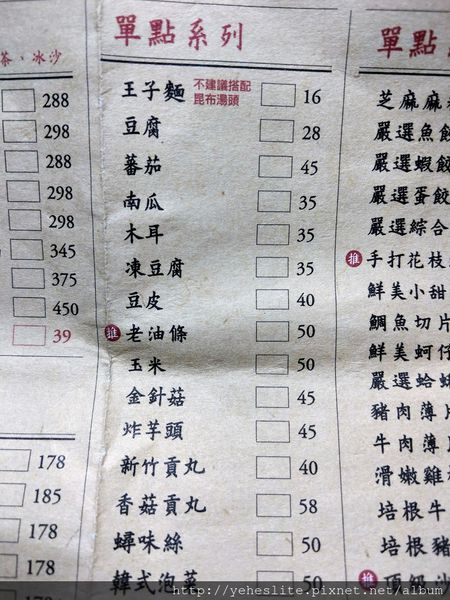 茶、冰沙
288
298
288
298
298
345
375
450
39
178
185
178
178
178
單點系列
王子麵 不建議搭配 16
昆布湯頭
豆腐 28
蕃茄 45
南瓜 35
木耳 35
凍豆腐 35
豆皮 40
推 老油條 50
玉米 50
金針菇 45
炸芋頭 45
新竹貢丸 40
香菇貢丸 58
蟳味絲 50
韓式泡菜 50
單點
芝麻麻
嚴選魚餃
嚴選蝦餃
嚴選蛋餃
嚴選綜合
推 手打花枝
鮮美小甜
鯛魚切片
鮮美蚵仔
嚴選蛤蜊
豬肉薄片
牛肉薄片
滑嫩雞
培根牛
培根豬
推 頂級沙
http://yeheslite.pixnet.net/album